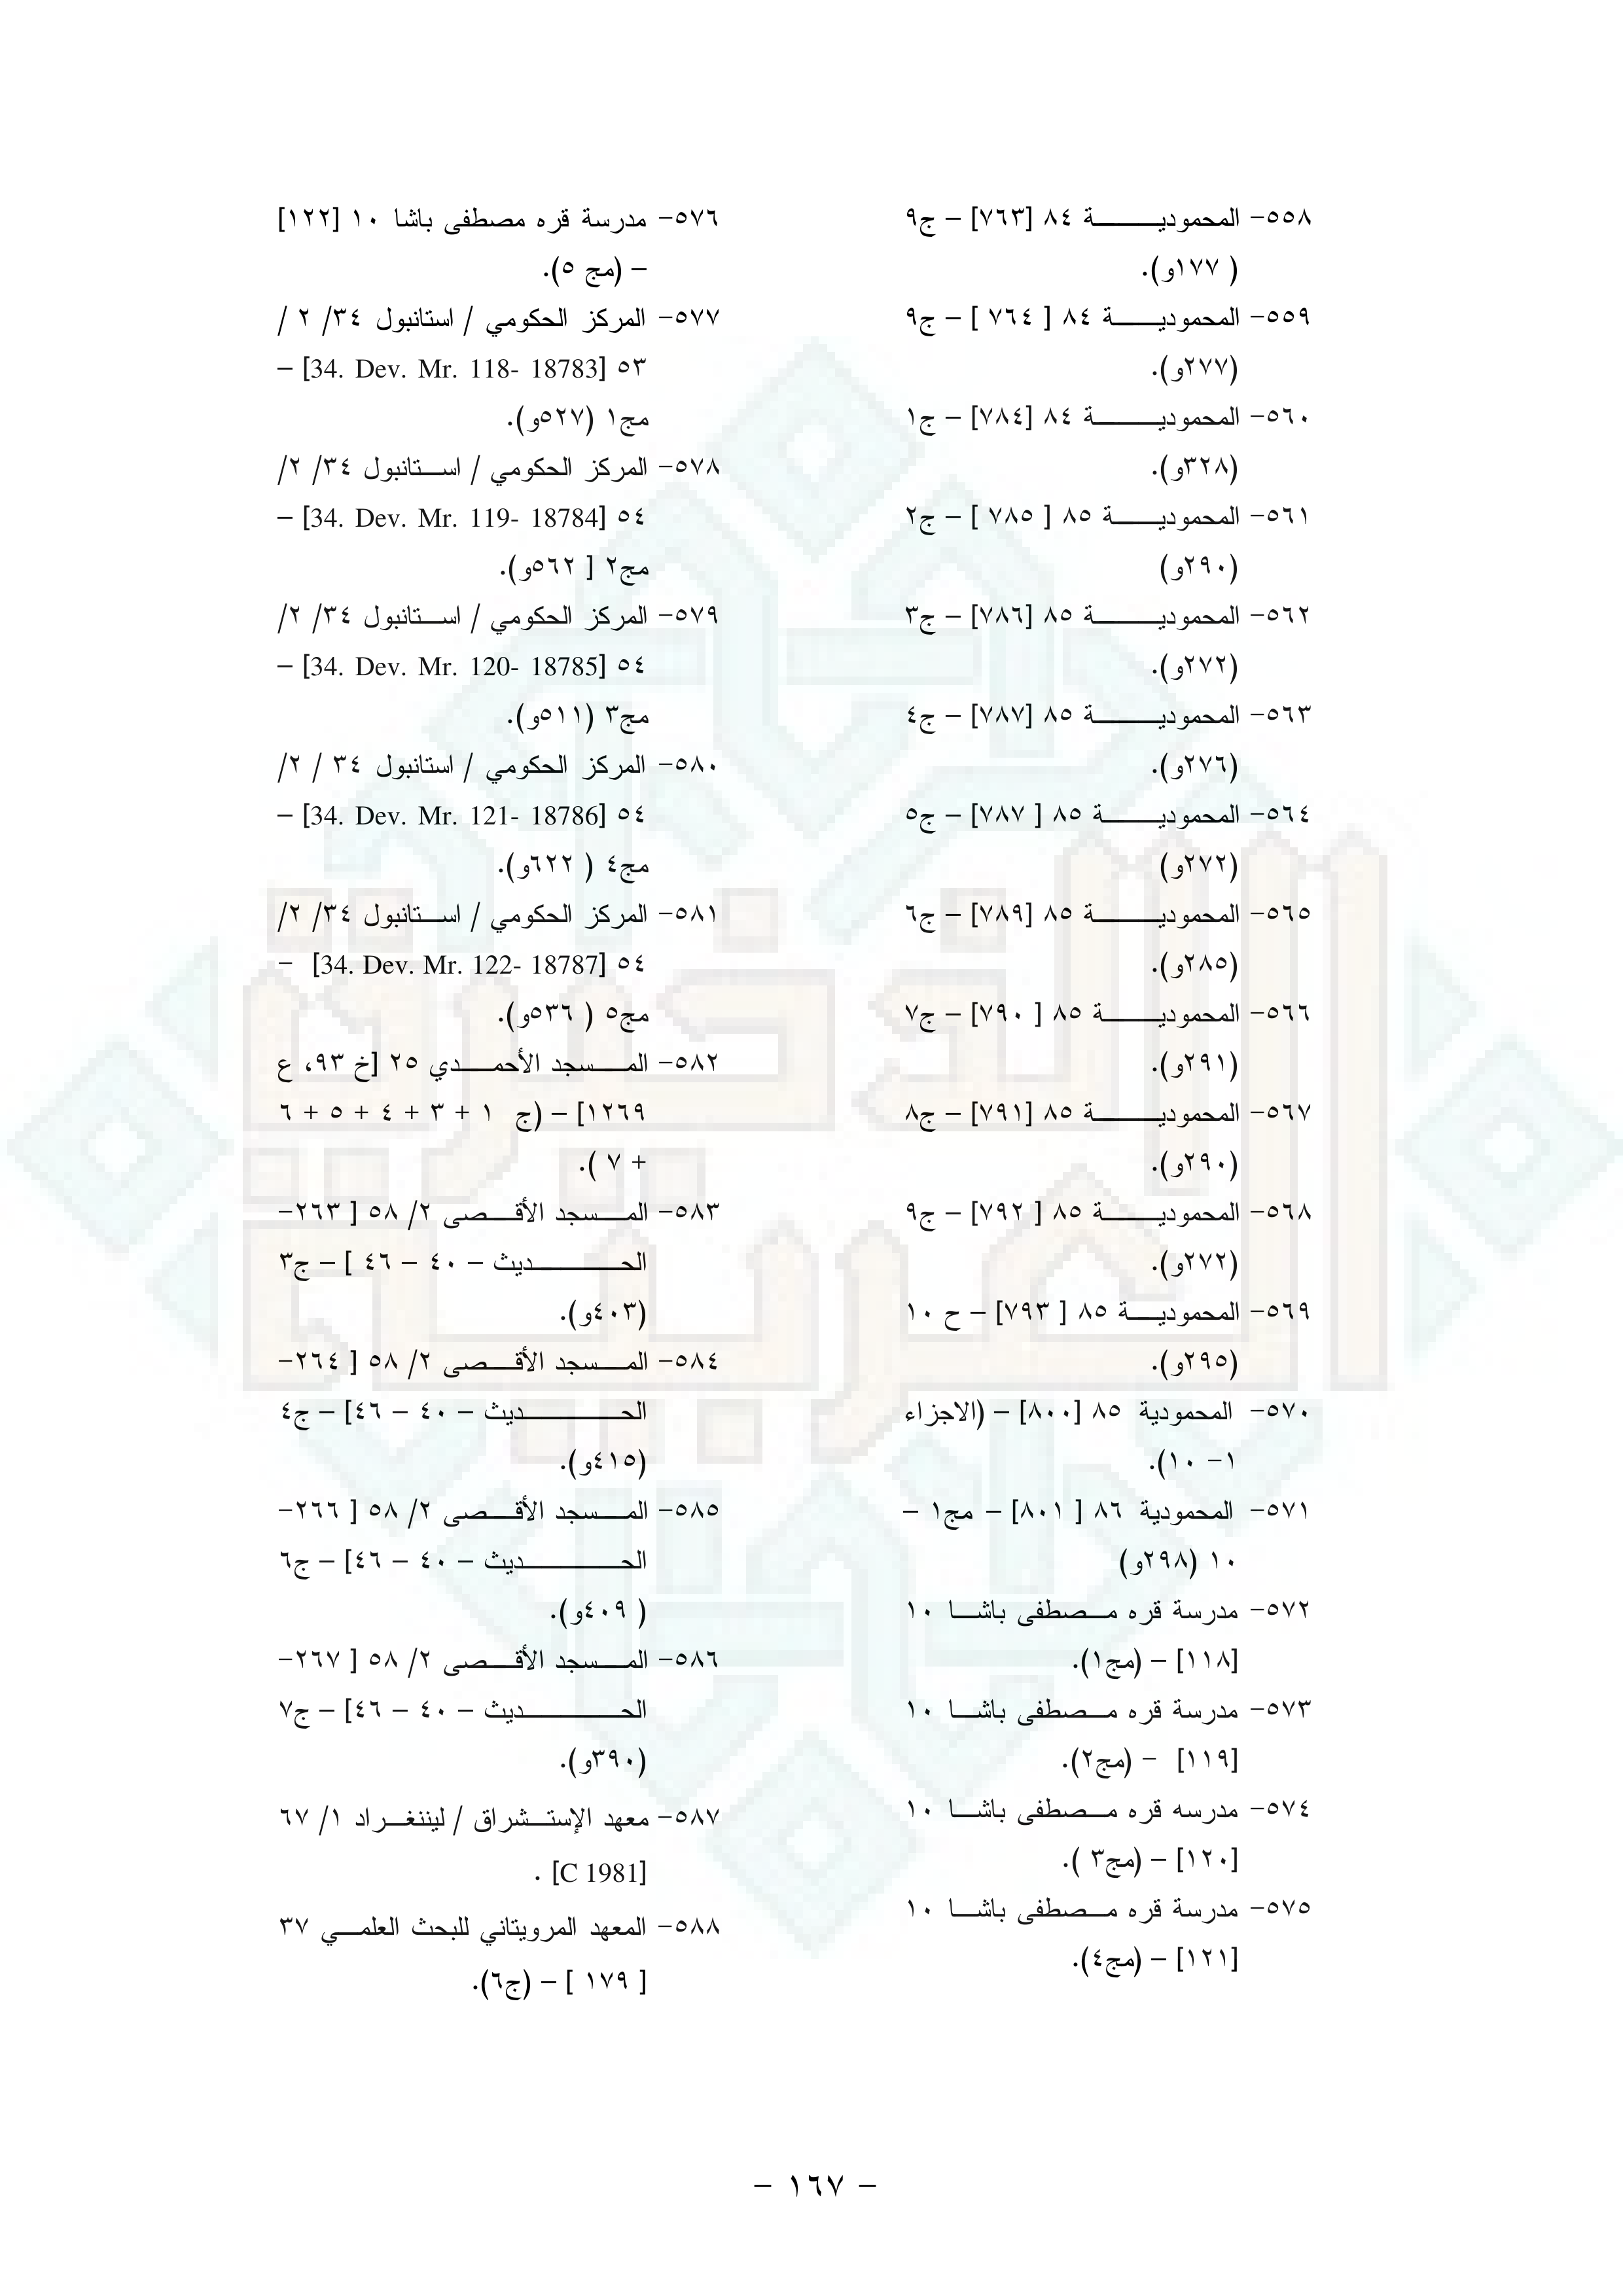 ٥٥٨- المحمودية ٨٤ [٧٦٣] – ج٩
( ١٧٧و).
٥٥٩- المحمودية ٨٤ [ ٧٦٤ ] – ج٩
(٢٧٧و).
٥٦٠- المحمودية ٨٤ [٧٨٤] – ج١
(٣٢٨و).
٥٦١- المحمودية ٨٥ [ ٧٨٥ ] – ج٢
(٢٩٠و)
٥٦٢- المحمودية ٨٥ [٧٨٦] – ج٣
(٢٧٢و).
٥٦٣- المحمودية ٨٥ [٧٨٧] – ج٤
(٢٧٦و).
٥٦٤- المحمودية ٨٥ [ ٧٨٧] – ج٥
(٢٧٢و)
٥٦٥- المحمودية ٨٥ [٧٨٩] – ج٦
(٢٨٥و).
٥٦٦- المحمودية ٨٥ [ ٧٩٠] – ج٧
(٢٩١و).
٥٦٧- المحمودية ٨٥ [٧٩١] – ج٨
(٢٩٠و).
٥٦٨- المحمودية ٨٥ [ ٧٩٢] – ج٩
(٢٧٢و).
٥٦٩- المحمودية ٨٥ [ ٧٩٣] – ح ١٠
(٢٩٥و).
٥٧٠- المحمودية ٨٥ [٨٠٠] – (الاجزاء
١- ١٠).
٥٧١- المحمودية ٨٦ [ ٨٠١] – مج١ –
١٠ (٢٩٨و)
٥٧٢- مدرسة قره مصطفى باشا ١٠
[١١٨] – (مج١).
٥٧٣- مدرسة قره مصطفى باشا ١٠
[١١٩] - (مج٢).
٥٧٤- مدرسه قره مصطفى باشا ١٠
[١٢٠] – (مج٣ ).
٥٧٥- مدرسة قره مصطفى باشا ١٠
[١٢١] – (مج٤).
٥٧٦- مدرسة قره مصطفى باشا ١٠ [١٢٢]
– (مج ٥).
٥٧٧- المركز الحكومي / استانبول ٣٤/ ٢ /
٥٣ [34. Dev. Mr. 118- 18783] –
مج١ (٥٢٧و).
٥٧٨- المركز الحكومي / استانبول ٣٤/ ٢/
٥٤ [34. Dev. Mr. 119- 18784] –
مج٢ [ ٥٦٢و).
٥٧٩- المركز الحكومي / استانبول ٣٤/ ٢/
٥٤ [34. Dev. Mr. 120- 18785] –
مج٣ (٥١١و).
٥٨٠- المركز الحكومي / استانبول ٣٤ / ٢/
٥٤ [34. Dev. Mr. 121- 18786] –
مج٤ ( ٦٢٢و).
٥٨١- المركز الحكومي / استانبول ٣٤/ ٢/
٥٤ [34. Dev. Mr. 122- 18787] -
مج٥ ( ٥٣٦و).
٥٨٢- المسجد الأحمدي ٢٥ [خ ٩٣، ع
١٢٦٩] – (ج ١ + ٣ + ٤ + ٥ + ٦
+ ٧ ).
٥٨٣- المسجد الأقصى ٢/ ٥٨ [ ٢٦٣-
الحديث – ٤٠ – ٤٦ ] – ج٣
(٤٠٣و).
٥٨٤- المسجد الأقصى ٢/ ٥٨ [ ٢٦٤-
الحديث – ٤٠ – ٤٦] – ج٤
(٤١٥و).
٥٨٥- المسجد الأقصى ٢/ ٥٨ [ ٢٦٦-
الحديث – ٤٠ – ٤٦] – ج٦
( ٤٠٩و).
٥٨٦- المسجد الأقصى ٢/ ٥٨ [ ٢٦٧-
الحديث – ٤٠ – ٤٦] – ج٧
(٣٩٠و).
٥٨٧- معهد الإستشراق / ليننغراد ١/ ٦٧
[C 1981] .
٥٨٨- المعهد المرويتاني للبحث العلمي ٣٧
[ ١٧٩ ] – (ج٦).
– ١٦٧ –